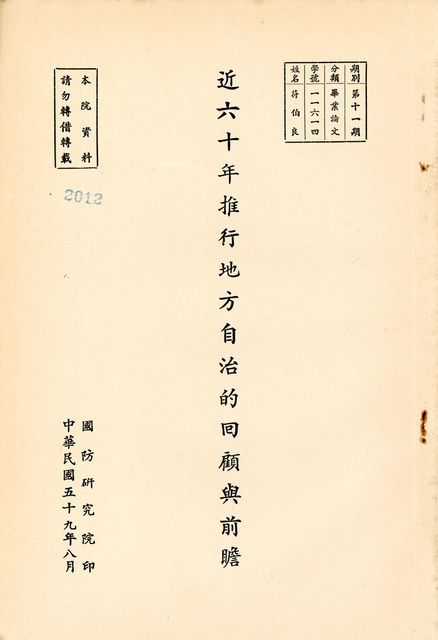 期別 第十一期
分類 畢業論文
學號 一一六一四
姓名 符伯良
近六十年推行地方自治的回顧與前瞻
本院資料
請勿轉借轉載
2012
國防研究院印
中華民國五十九年八月